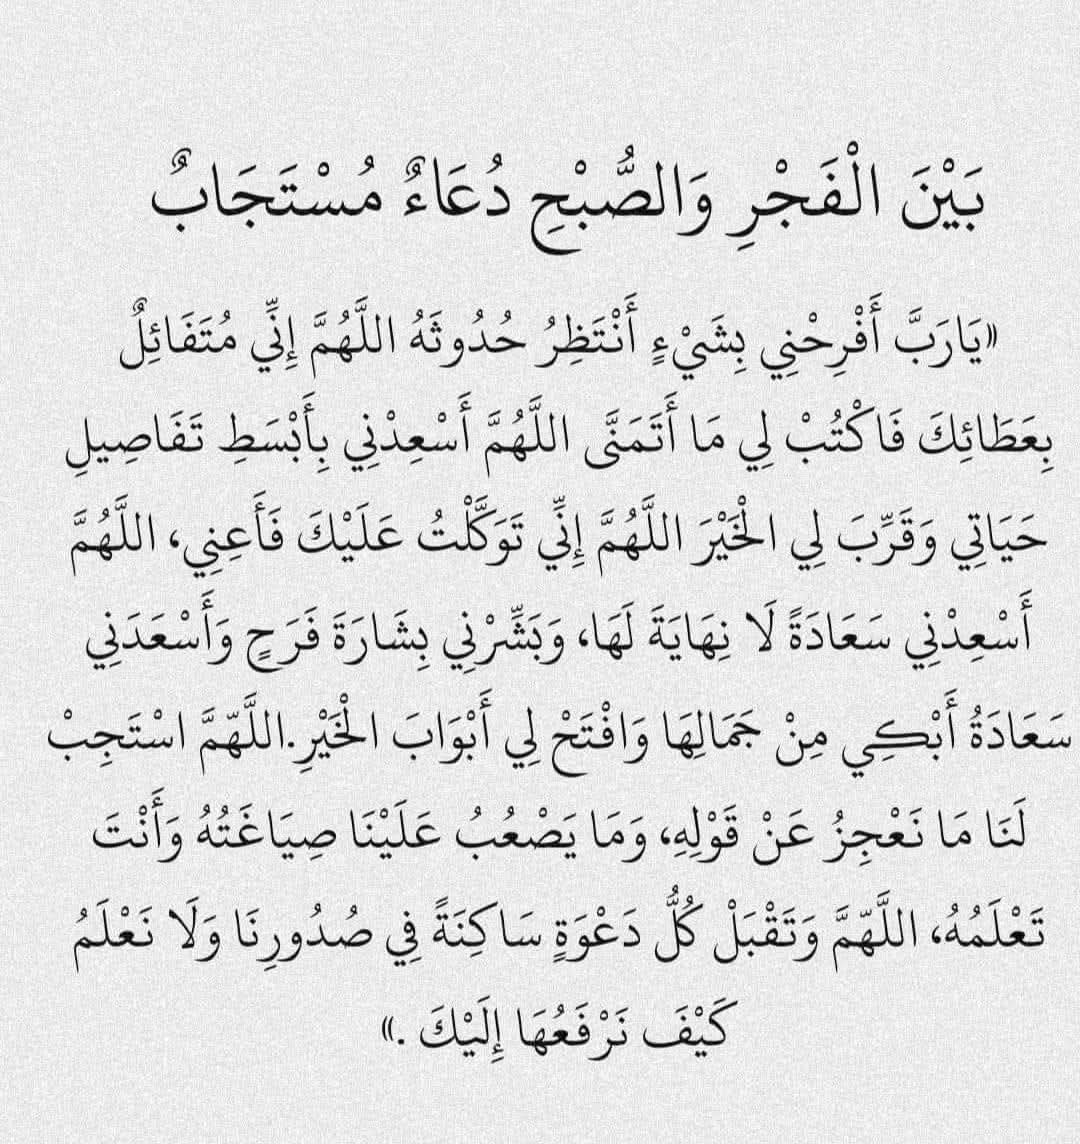 بَيْنَ الْفَجْرِ وَالصُّبْحِ دُعَاءٌ مُسْتَجَابٌ
«يَارَبَّ أَفْرِحْنِي بِشَيْءٍ أَنْتَظِرُ حُدُوثَهُ اللَّهُمَّ إِنِّي مُتَفَائِلٌ
بِعَطَائِكَ فَاكْتُبْ لِي مَا أَتَمَنَّى اللَّهُمَّ أَسْعِدْنِي بِأَبْسَطِ تَفَاصِيلِ
حَيَاتِي وَقَرِّبَ لِي الْخَيْرَ اللَّهُمَّ إِنِّي تَوَكَّلْتُ عَلَيْكَ فَأَعِنِي، اللَّهُمَّ
أَسْعِدْنِي سَعَادَةً لَا نِهَايَةَ لَهَا، وَبَشِّرْنِي بِشَارَةَ فَرَحٍ وَأَسْعَدَنِي
سَعَادَةُ أَبْكِي مِنْ جَمَالِهَا وَافْتَحْ لِي أَبْوَابَ الْخَيْرِ.اللَّهّمَّ اسْتَجِبْ
لَنَا مَا نَعْجِزُ عَنْ قَوْلِهِ، وَمَا يَصْعُبُ عَلَيْنَا صِيَاغَتُهُ وَأَنْتَ
تَعْلَمُهُ، اللَّهّمَّ وَتَقْبَلْ كُلُّ دَعْوَةٍ سَاكِنَةً فِي صُدُورِنَا وَلَا نَعْلَمُ
كَيْفَ نَرْفَعُهَا إِلَيْكَ .»